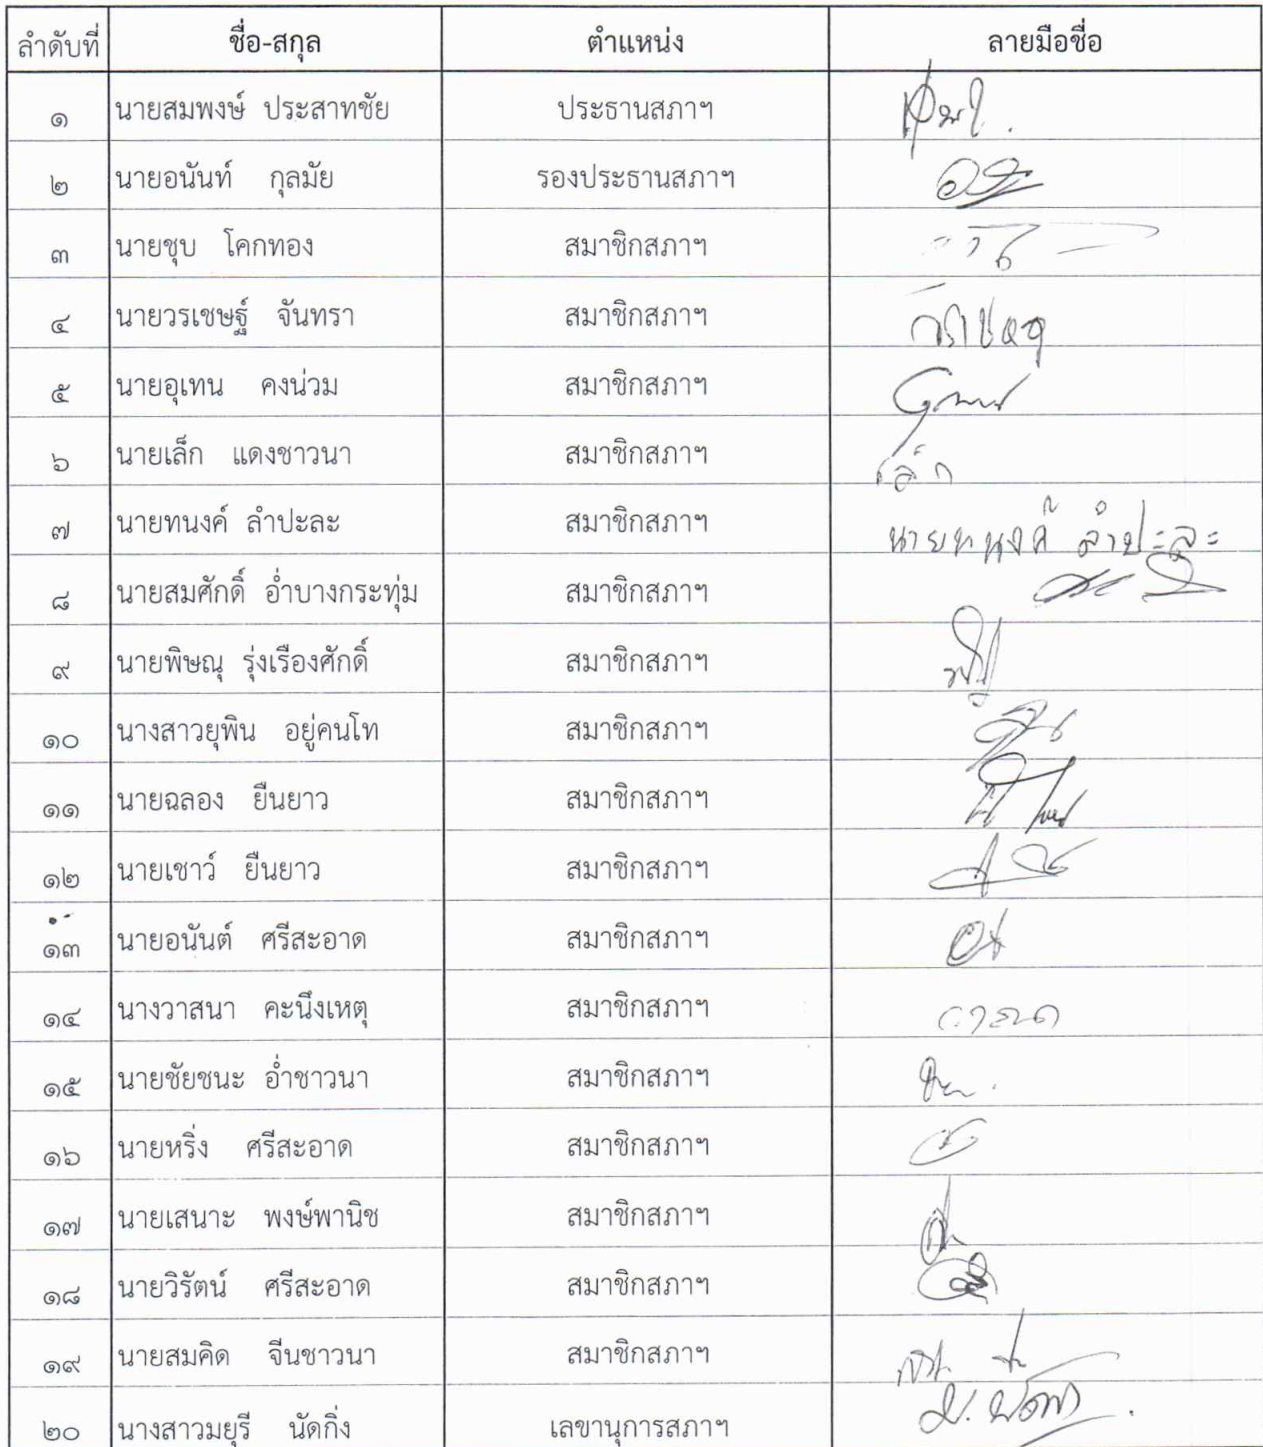 ลำดับที่ ชื่อ-สกุล ตำแหน่ง ลายมือชื่อ
๑ นายสมพงษ์ ประสาทชัย ประธานสภาฯ
๒ นายอนันท์ กุลมัย รองประธานสภาฯ
๓ นายชุบ โคกทอง สมาชิกสภาฯ
๔ นายวรเชษฐ์ จันทรา สมาชิกสภาฯ
๕ นายอุเทน คงน่วม สมาชิกสภาฯ
๖ นายเล็ก แดงชาวนา สมาชิกสภาฯ เล็ก
๗ นายทนงค์ ลำปะละ สมาชิกสภาฯ นายทนงค์ ลำปะละ
๘ นายสมศักดิ์ อ่ำบางกระทุ่ม สมาชิกสภาฯ
๙ นายพิษณุ รุ่งเรืองศักดิ์ สมาชิกสภาฯ
๑๐ นางสาวยุพิน อยู่คนโท สมาชิกสภาฯ
๑๑ นายฉลอง ยืนยาว สมาชิกสภาฯ
๑๒ นายเชาว์ ยืนยาว สมาชิกสภาฯ
๑๓ นายอนันต์ ศรีสะอาด สมาชิกสภาฯ
๑๔ นางวาสนา คะนึงเหตุ สมาชิกสภาฯ วาสนา
๑๕ นายชัยชนะ อ่ำชาวนา สมาชิกสภาฯ
๑๖ นายหริ่ง ศรีสะอาด สมาชิกสภาฯ
๑๗ นายเสนาะ พงษ์พานิช สมาชิกสภาฯ
๑๘ นายวิรัตน์ ศรีสะอาด สมาชิกสภาฯ
๑๙ นายสมคิด จีนชาวนา สมาชิกสภาฯ
๒๐ นางสาวมยุรี นัดกิ่ง เลขานุการสภาฯ